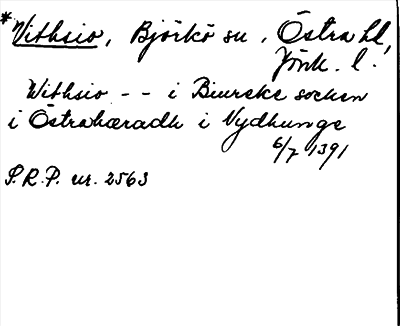 *Vithsio, Björkö sn, Östra hd,
Jönk. l.
Withsio - - i Biurske socken
i Östrahæradh i Nydhunge
6/7 1391
S.R.P. nr. 2563